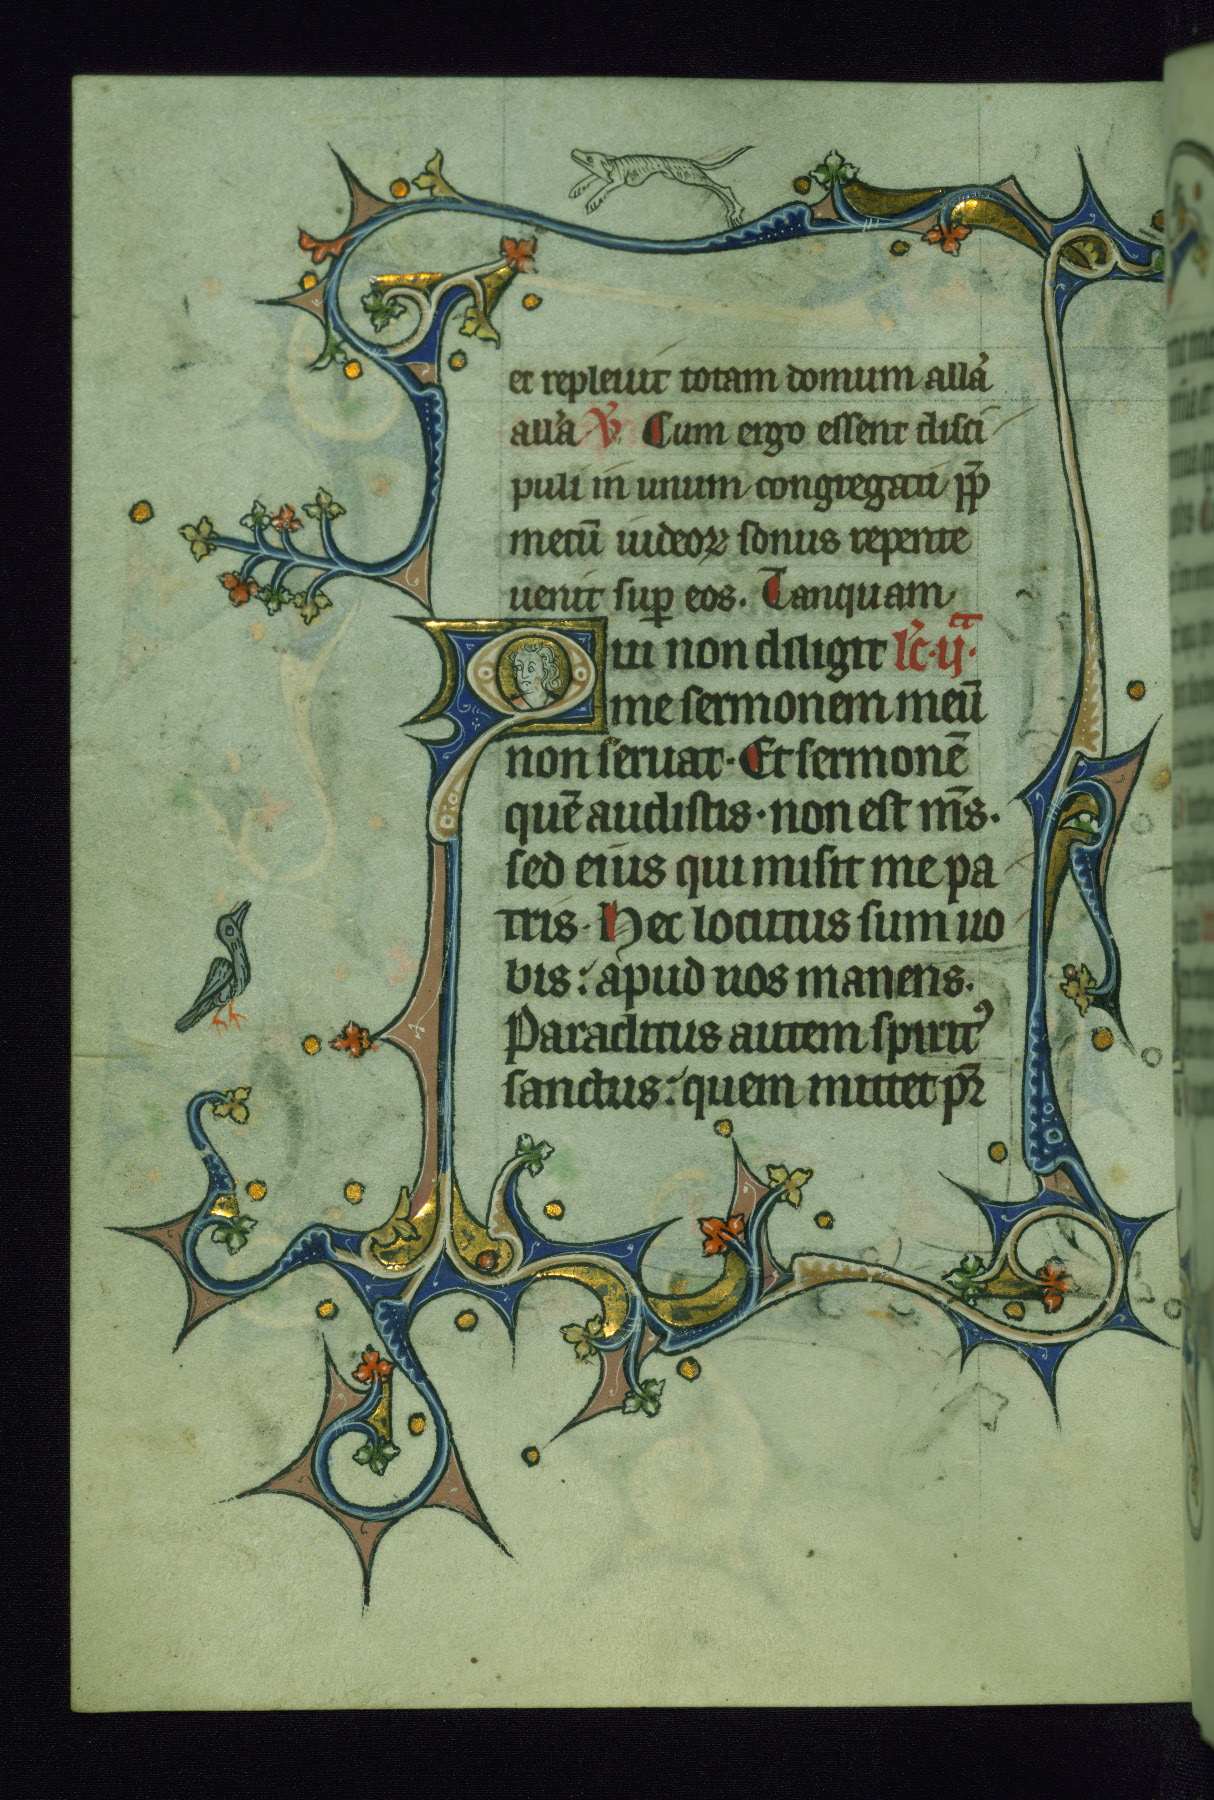 et repleuit totam domum alla᷒
alla᷒ ℣ Cum ergo essent disci
puli in unum congregati ꝓp̄
metū iudeoꝝ sonus repente
uenit suꝑ eos. Tanquam
Qui non diligit lc̄·ij·ᵃ
me sermonem meū
non seruat· Et sermonē
quē audistis· non est ms̄·
sed eius qui misit me pa
tris· Hec locutus sum uo
bis: apud uos manens.
Paraclitus autem spiritꝰ
sanctus: quem mittet pr̄